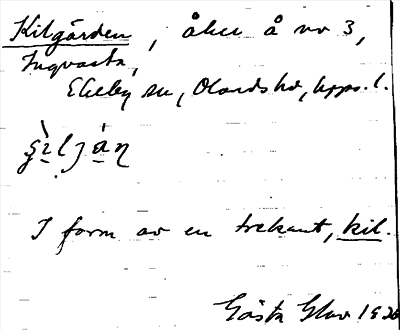 Kilgärden, åker å no 3,
Ingvasta,
Ekeby sn, Olands hd, Upps. l.
I form av en trekant, kil.
Gösta Glav 1926